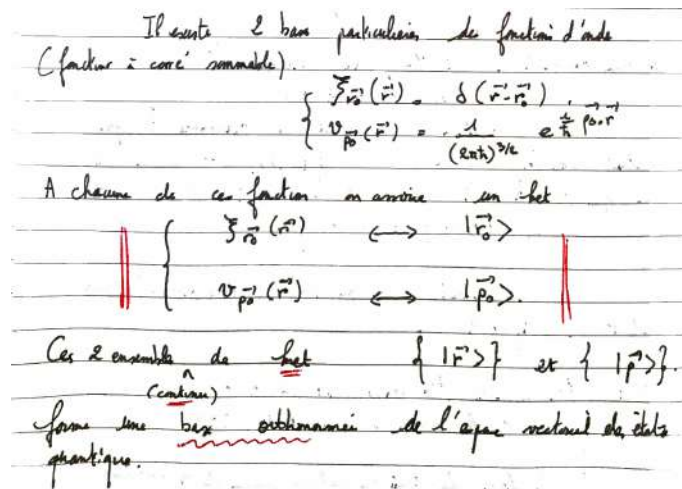 Il existe 2 bases particulières de fonctions d'onde
(fonction à carré sommable).
{ ξ_{\vec{r_0}}(\vec{r}) = δ(\vec{r}-\vec{r_0})
v_{\vec{p_0}}(\vec{r}) = \frac{1}{(2πħ)^{3/2}} e^{\frac{i}{ħ} \vec{p_0}.\vec{r}}
A chacune de ces fonction on associe un ket
{ ξ_{\vec{r_0}}(\vec{r}) ⟷ |\vec{r_0}>
v_{\vec{p_0}}(\vec{r}) ⟷ |\vec{p_0}>.
Ces 2 ensemble de ket { |\vec{r}>} et { |\vec{p}>}.
(continue)
forme une base orthonormée de l'espace vectoriel des états
quantique.